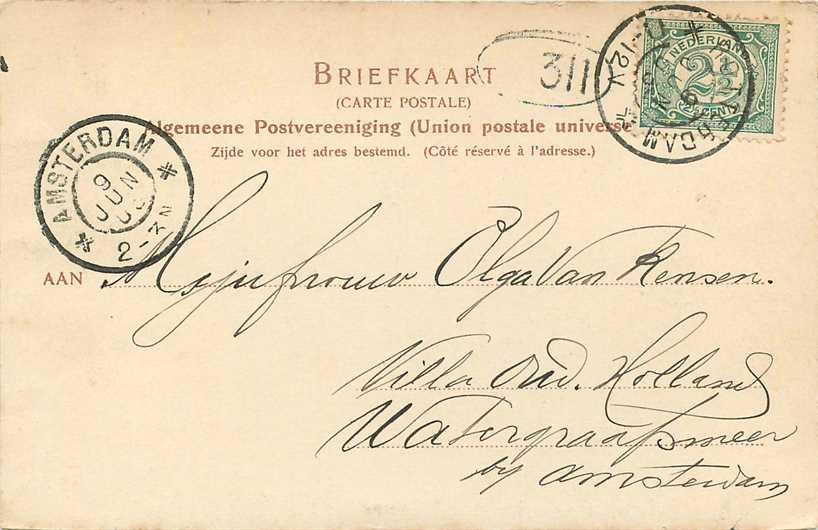 BRIEFKAART
(CARTE POSTALE)
Algemeene Postvereeniging (Union postale universe
Zijde voor het adres bestemd. (Côté réservé à l'adresse.)
311
NEDERLAND
2½
CENT
AMSTERDAM
9
JUN
2-3N
AAN Mejufrouw Olga Van Rensen.
Villa Oud. Holland
Watergraafsmeer
by Amsterdam